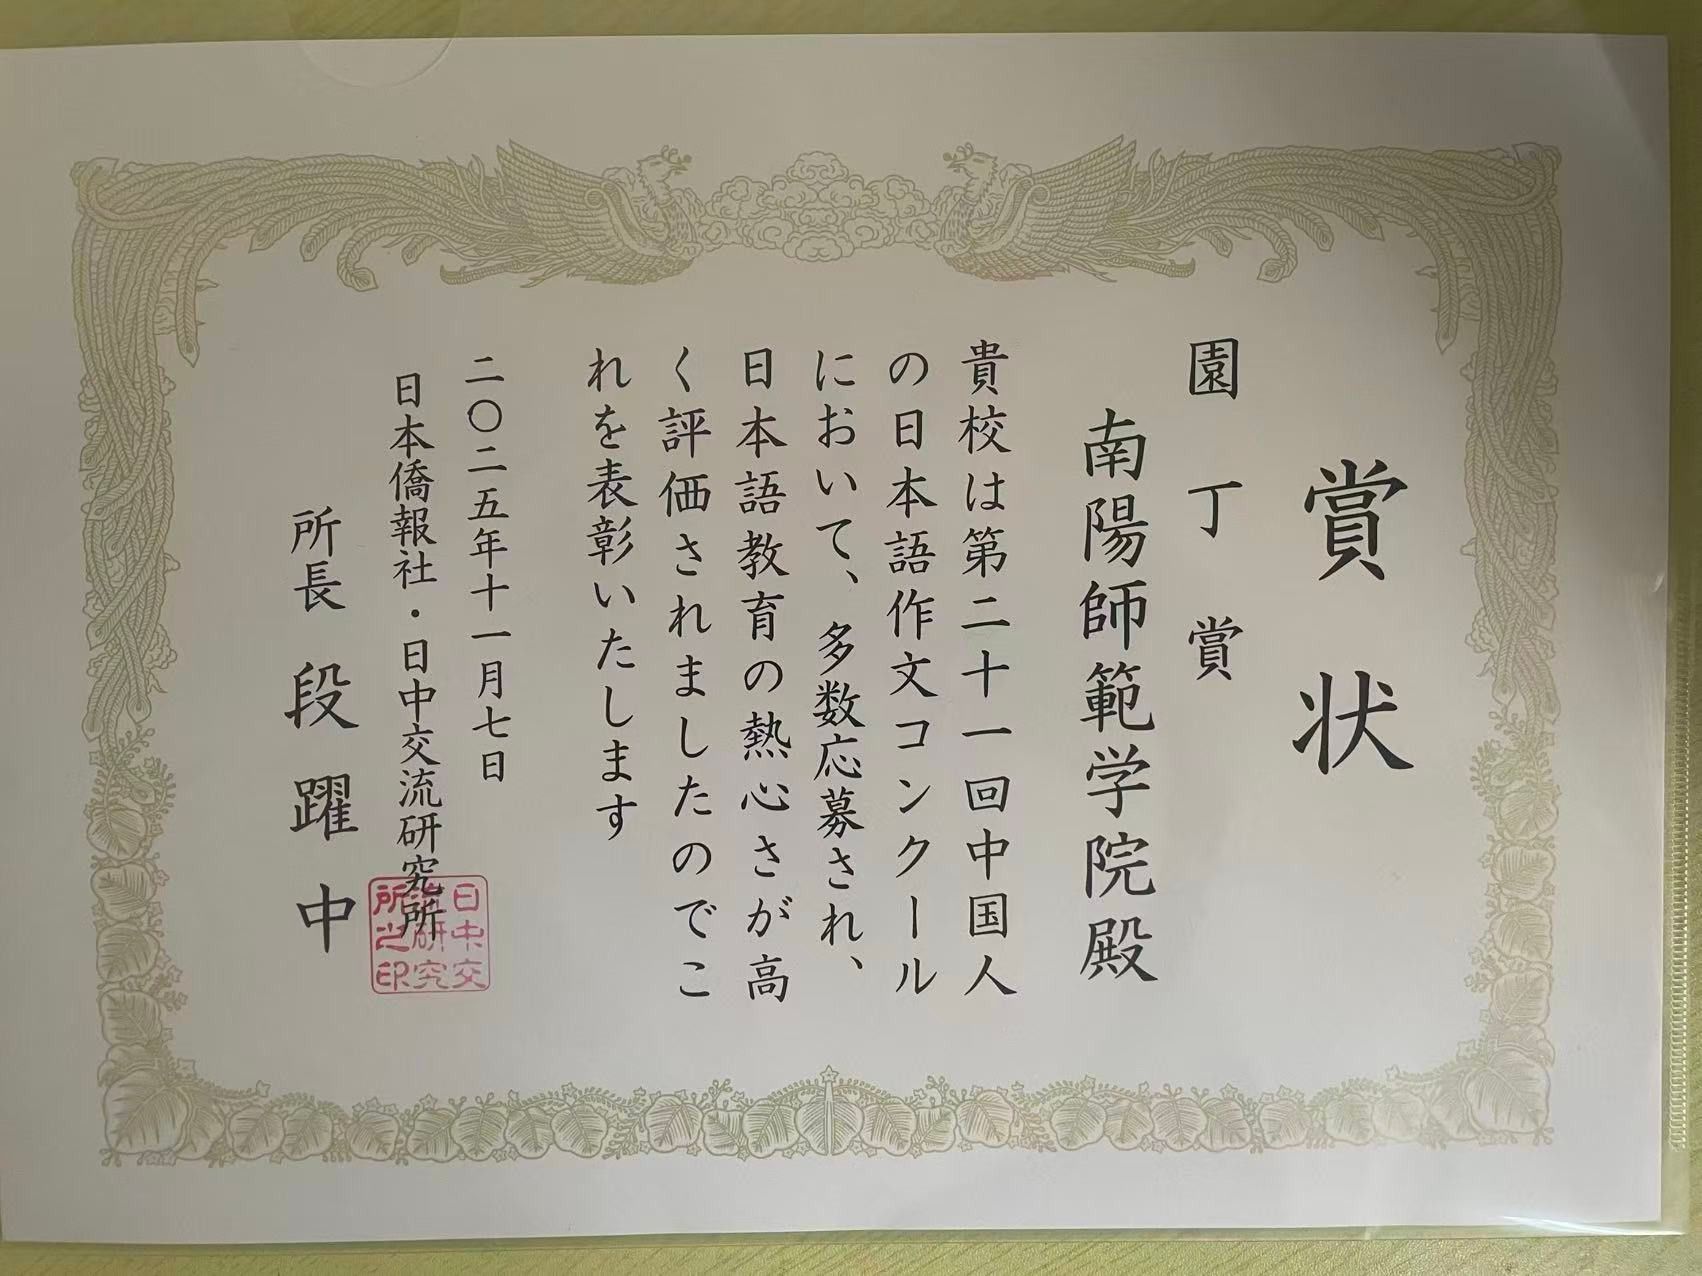 賞状
園丁賞
南陽師範学院殿
貴校は第二十一回中国人
の日本語作文コンクール
において、多数応募され、
日本語教育の熱心さが高
く評価されましたのでこ
れを表彰いたします
二〇二五年十一月七日
日本僑報社・日中交流研究所
所長 段躍中
日中交
流研究
所之印